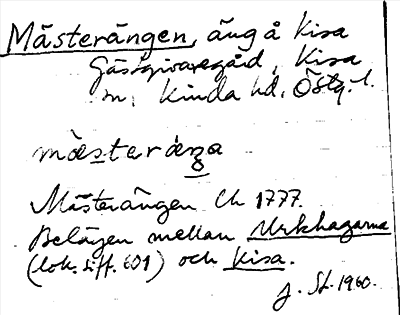 Mästerängen, äng å Kisa
Gästgivaregård, Kisa
sn, Kinda hd, Östg. l.
mæsteræŋa
Mästerängen Ch 1777.
Belägen mellan Urkhagarna
(lok. siff. 601) och Kisa.
J. St. 1960.